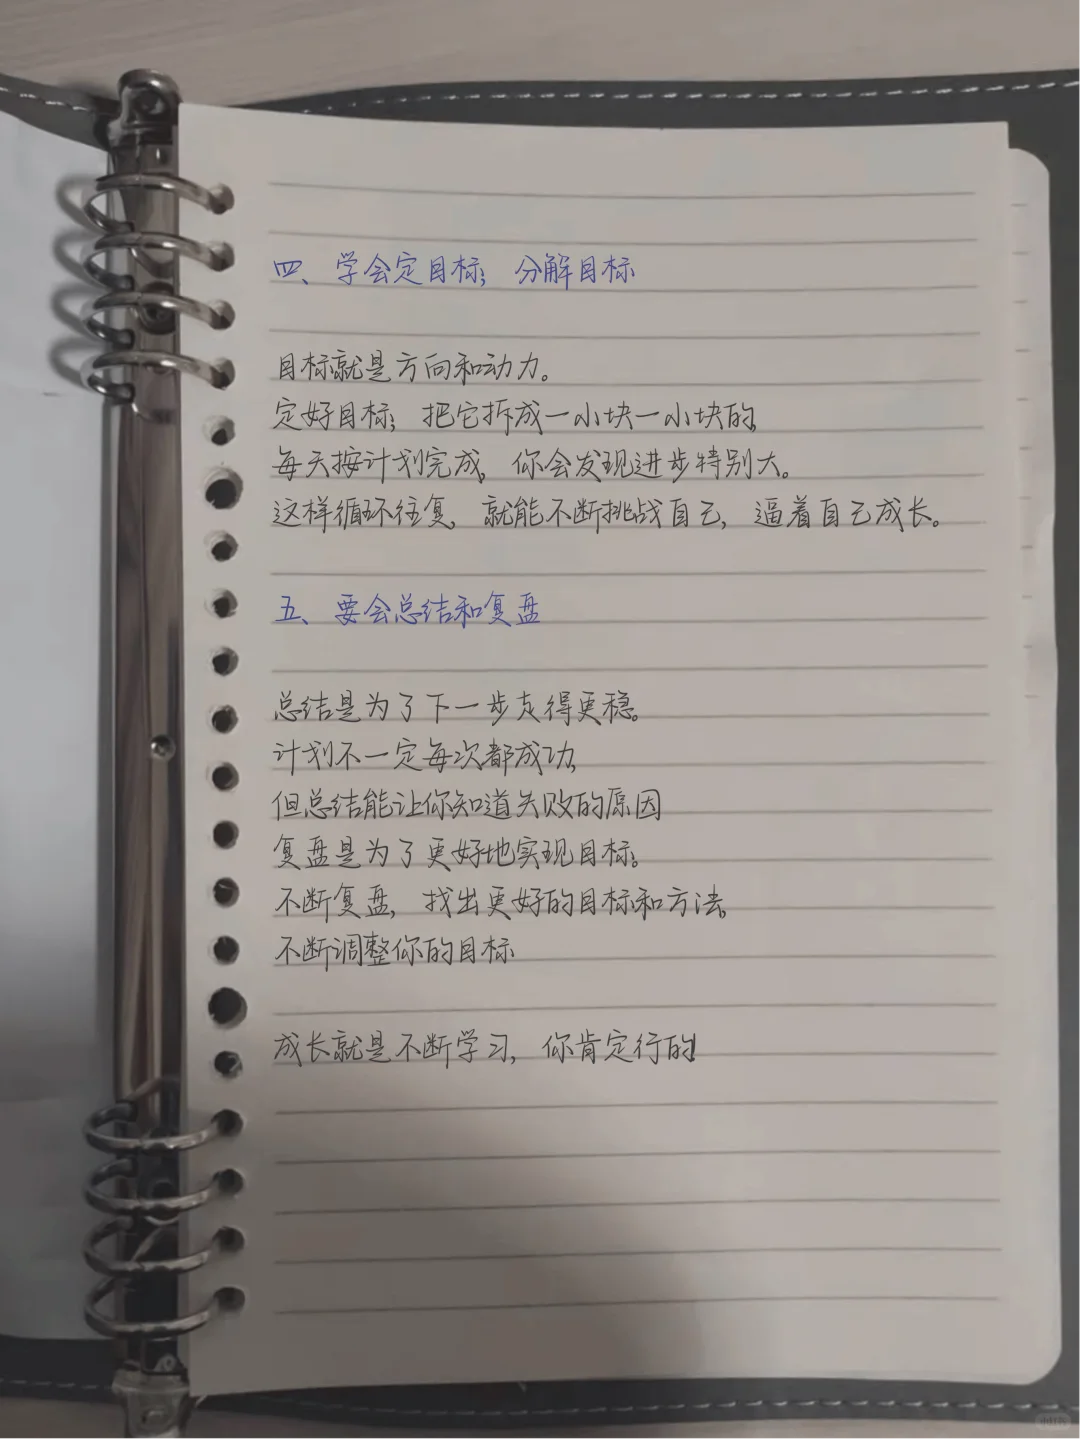 四、学会定目标，分解目标
目标就是方向和动力。
定好目标，把它拆成一小块一小块的，
每天按计划完成，你会发现进步特别大。
这样循环往复，就能不断挑战自己，逼着自己成长。
五、要会总结和复盘
总结是为了下一步走得更稳。
计划不一定每次都成功，
但总结能让你知道失败的原因
复盘是为了更好地实现目标。
不断复盘，找出更好的目标和方法，
不断调整你的目标
成长就是不断学习，你肯定行的!